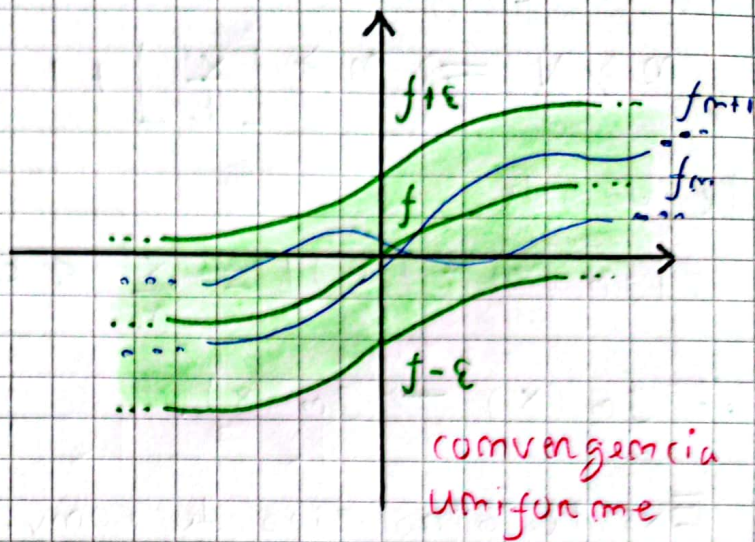 f+ε
fn+1
f
fn
f-ε
convergencia
uniforme